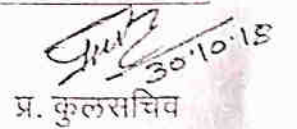 30.10.18
प्र. कुलसचिव